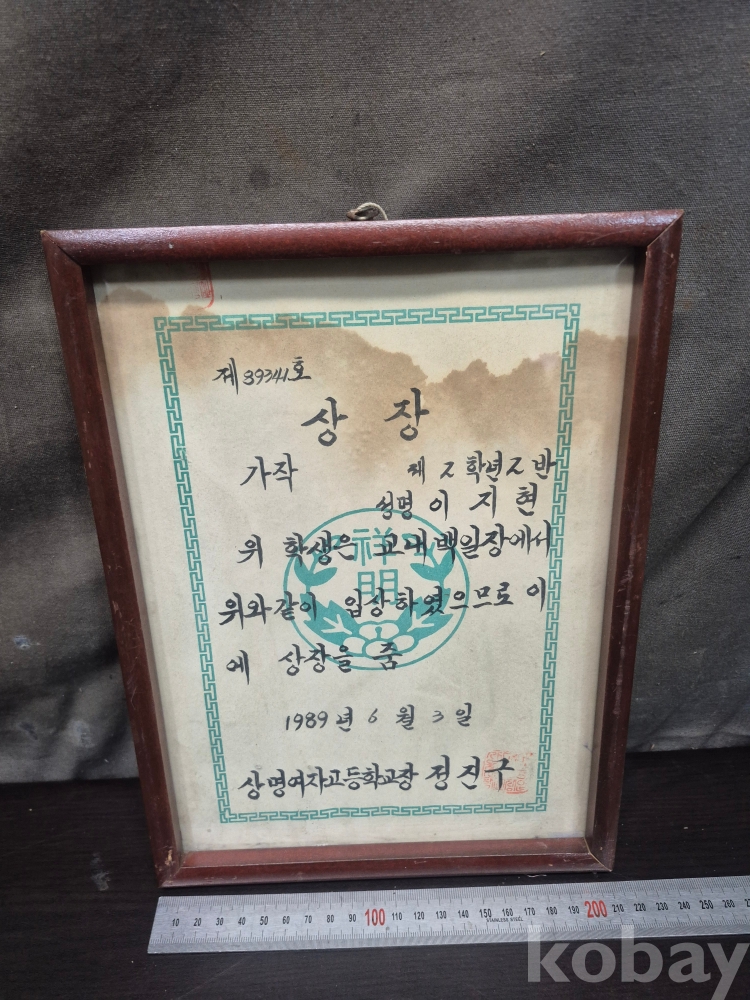 제 89341호
상 장
가작
제 2 학년 2 반
성명 이 지 현
위 학생은 교내 백일장에서
위와 같이 입상하였으므로 이
에 상장을 줌
祥明
1989 년 6 월 3 일
상명여자고등학교장 정진구
10 20 30 40 50 60 70 80 90 100 110 120 130 140 150 160 170 180 190 200 210 220 230 240 250 260
STAINLESS STEEL
kobay